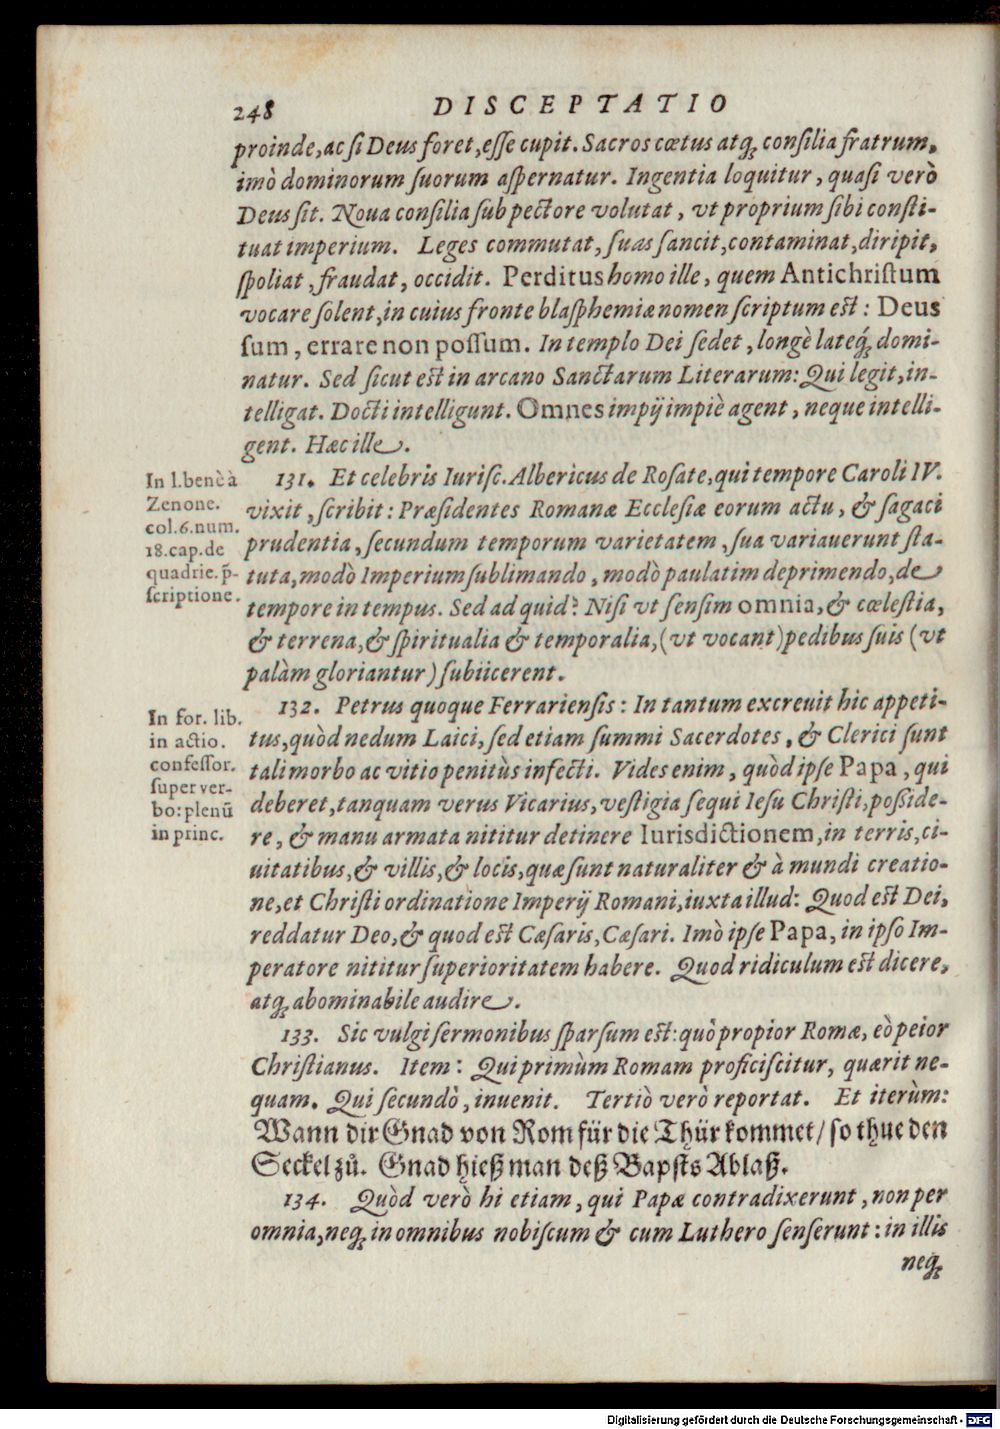 248 DISCEPTATIO
proinde, ac si Deus foret, esse cupit. Sacros cœtus atq; consilia fratrum,
imò dominorum suorum aspernatur. Ingentia loquitur, quasi verò
Deus sit. Noua consilia sub pectore volutat, vt proprium sibi consti-
tuat imperium. Leges commutat, suas sancit, contaminat, diripit,
spoliat, fraudat, occidit. Perditus homo ille, quem Antichristum
vocare solent, in cuius fronte blasphemiæ nomen scriptum est: Deus
sum, errare non possum. In templo Dei sedet, longè lateq́; domi-
natur. Sed sicut est in arcano Sanctarum Literarum: Qui legit, in-
telligat. Docti intelligunt. Omnes impij impiè agent, neque intelli-
gent. Hæc ille.
In l. benè à
Zenone.
col. 6. num.
18. cap. de
quadrie. p̃-
scriptione.
131. Et celebris Iurisc. Albericus de Rosate, qui tempore Caroli IV.
vixit, scribit: Præsidentes Romanæ Ecclesiæ eorum actu, & sagaci
prudentia, secundum temporum varietatem, sua variauerunt sta-
tuta, modò Imperium sublimando, modò paulatim deprimendo, de
tempore in tempus. Sed ad quid? Nisi vt sensim omnia, & cœlestia,
& terrena, & spiritualia & temporalia, (vt vocant) pedibus suis (vt
palàm gloriantur) subiicerent.
In for. lib.
in actio.
confessor.
super ver-
bo: plenũ
in princ.
132. Petrus quoque Ferrariensis: In tantum excreuit hic appeti-
tus, quòd nedum Laici, sed etiam summi Sacerdotes, & Clerici sunt
tali morbo ac vitio penitùs infecti. Vides enim, quòd ipse Papa, qui
deberet, tanquam verus Vicarius, vestigia sequi Iesu Christi, posside-
re, & manu armata nititur detinere Iurisdictionem, in terris, ci-
uitatibus, & villis, & locis, quæ sunt naturaliter & à mundi creatio-
ne, et Christi ordinatione Imperij Romani, iuxta illud: Quod est Dei,
reddatur Deo, & quod est Cæsaris, Cæsari. Imò ipse Papa, in ipso Im-
peratore nititur superioritatem habere. Quod ridiculum est dicere,
atq; abominabile audire.
133. Sic vulgi sermonibus sparsum est: quò propior Romæ, eò peior
Christianus. Item: Qui primùm Romam proficiscitur, quærit ne-
quam. Qui secundò, inuenit. Tertiò verò reportat. Et iterùm:
Wann dir Gnad von Rom für die Thür kommet/ so thue den
Seckel zů. Gnad hieß man deß Bapsts Ablaß.
134. Quòd verò hi etiam, qui Papæ contradixerunt, non per
omnia, neq; in omnibus nobiscum & cum Luthero senserunt: in illis
neq;
Digitalisierung gefördert durch die Deutsche Forschungsgemeinschaft - DFG